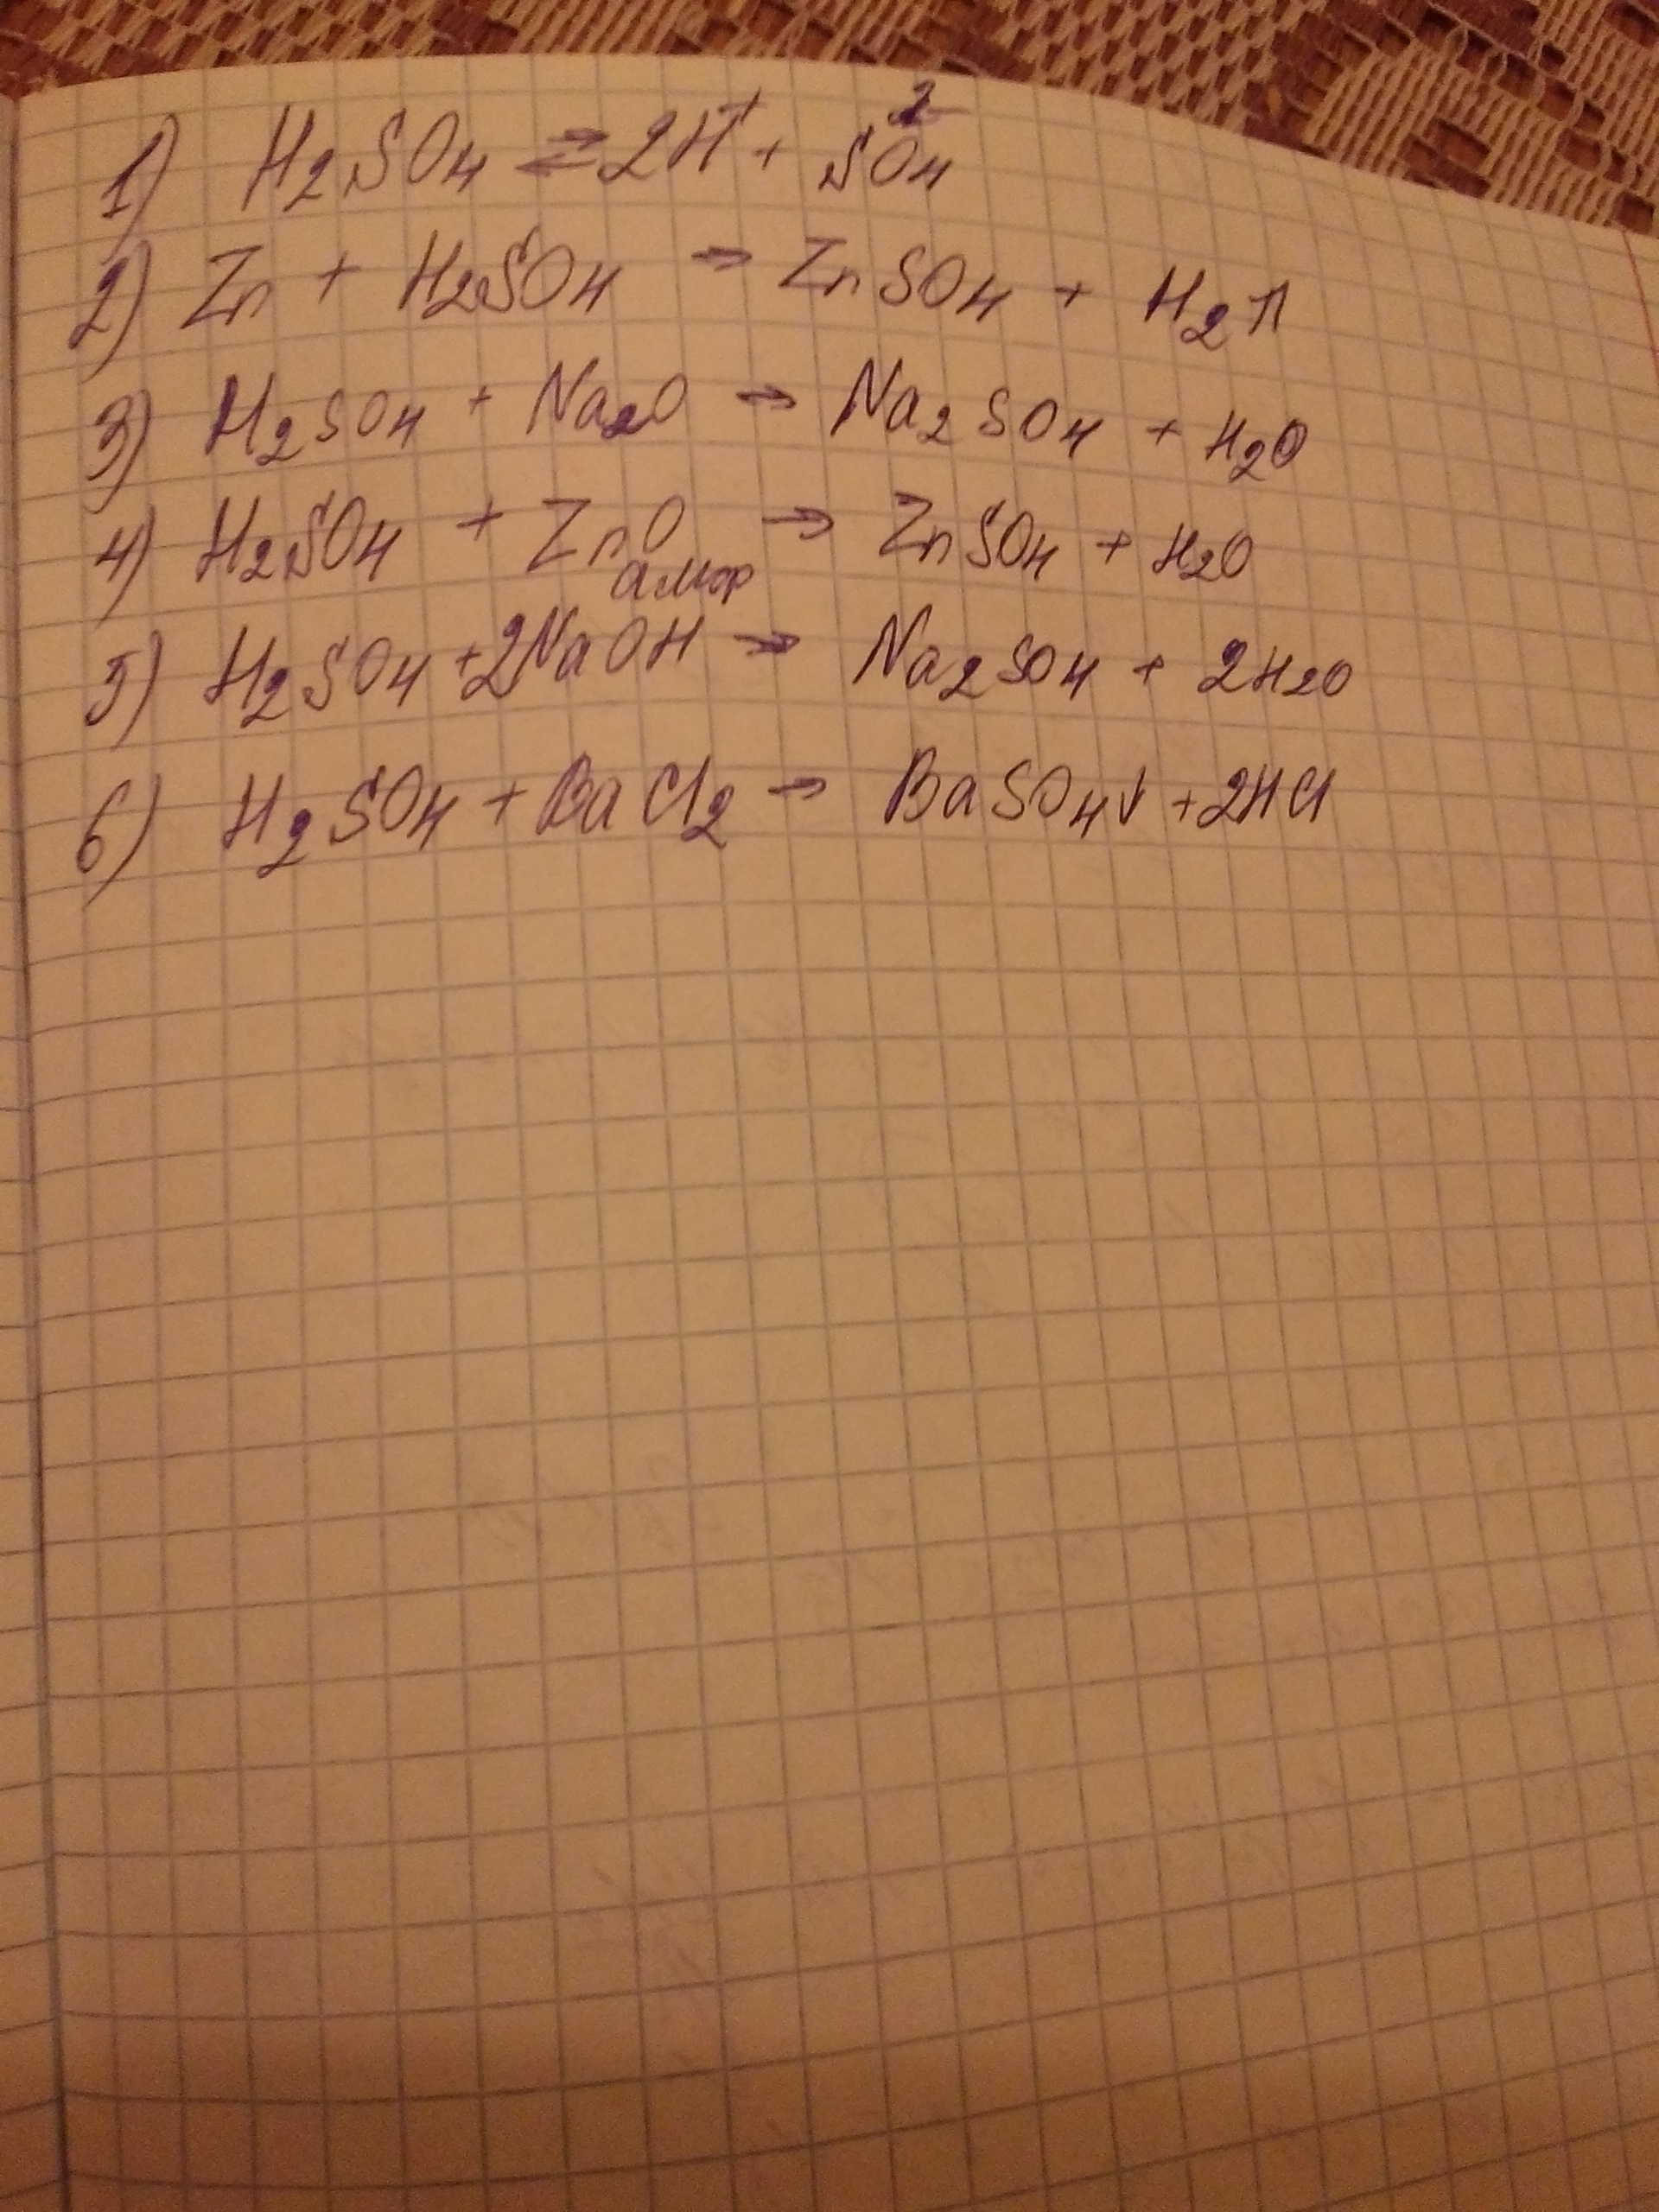 1) H₂SO₄ ⇄ 2H⁺ + SO₄²⁻
2) Zn + H₂SO₄ → ZnSO₄ + H₂↑
3) H₂SO₄ + Na₂O → Na₂SO₄ + H₂O
4) H₂SO₄ + ZnO → ZnSO₄ + H₂O
амф
5) H₂SO₄ + 2NaOH → Na₂SO₄ + 2H₂O
6) H₂SO₄ + BaCl₂ → BaSO₄↓ + 2HCl